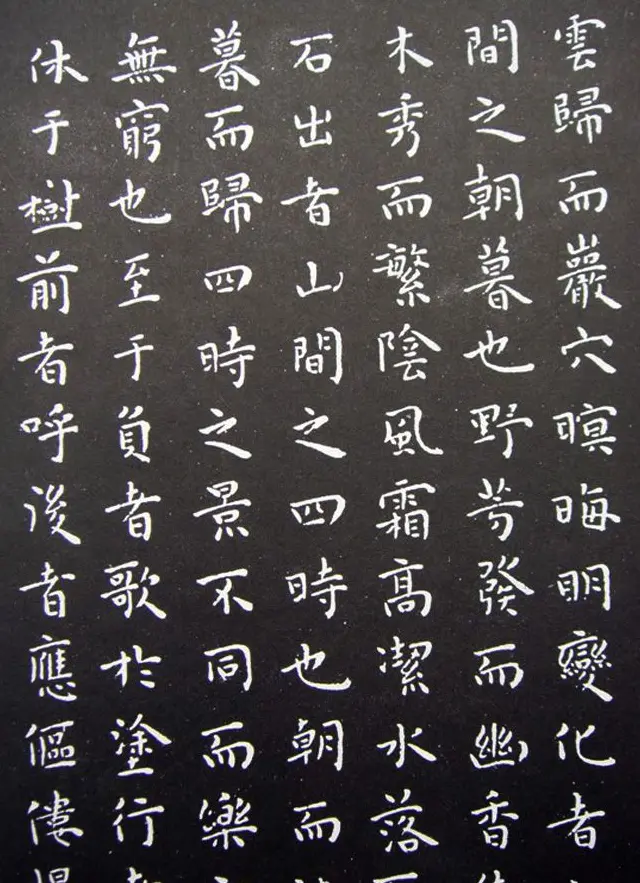 雲歸而巖穴暝晦明變化者
間之朝暮也野芳發而幽香
木秀而繁陰風霜高潔水落
石出者山間之四時也朝而
暮而歸四時之景不同而樂
無窮也至于負者歌於塗行
休于樹前者呼後者應傴僂